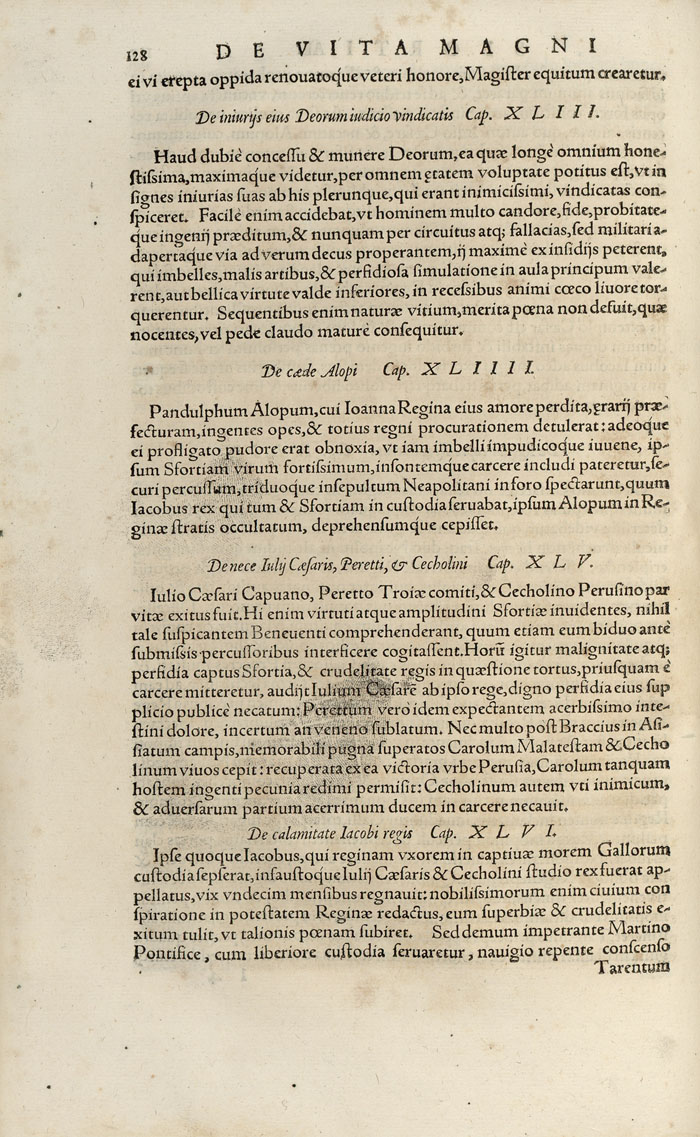 128 DE VITA MAGNI
ei vi erepta oppida renouatoq́ue veteri honore, Magiſter equitum crearetur.
De iniurijs eius Deorum iudicio vindicatis Cap. XLIII.
Haud dubiè conceſſu & munere Deorum, ea quæ longè omnium hone-
ſtiſsima, maximaque videtur, per omnem ętatem voluptate potitus eſt, vt in
ſignes iniurias ſuas ab his plerunque, qui erant inimiciſsimi, vindicatas con-
ſpiceret. Facilè enim accidebat, vt hominem multo candore, fide, probitate-
que ingenij præditum, & nunquam per circuitus atq; fallacias, ſed militari a-
dapertaque via ad verum decus properantem, ij maximè ex inſidijs peterent,
qui imbelles, malis artibus, & perfidioſa ſimulatione in aula principum vale-
rent, aut bellica virtute valde inferiores, in receſsibus animi cœco liuore tor-
querentur. Sequentibus enim naturæ vitium, merita pœna non defuit, quæ
nocentes, vel pede claudo maturè conſequitur.
De cæde Alopi Cap. XLIIII.
Pandulphum Alopum, cui Ioanna Regina eius amore perdita, ęrarij præ-
fecturam, ingentes opes, & totius regni procurationem detulerat: adeoque
ei profligato pudore erat obnoxia, vt iam imbelli impudicoq́ue iuuene, ip-
ſum Sfortiam virum fortiſsimum, inſontemque carcere includi pateretur, ſe-
curi percuſſum, triduoque inſepultum Neapolitani in foro ſpectarunt, quum
Iacobus rex qui tum & Sfortiam in cuſtodia ſeruabat, ipſum Alopum in Re-
ginæ ſtratis occultatum, deprehenſumque cepiſſet.
De nece Iulij Cæſaris, Peretti, & Cecholini Cap. XLV.
Iulio Cæſari Capuano, Peretto Troiæ comiti, & Cecholino Peruſino par
vitæ exitus fuit. Hi enim virtuti atque amplitudini Sfortiæ inuidentes, nihil
tale ſuſpicantem Beneuenti comprehenderant, quum etiam eum biduo antè
ſubmiſsis percuſſoribus interficere cogitaſſent. Horũ igitur malignitate atq;
perfidia captus Sfortia, & crudelitate regis in quæſtione tortus, priuſquam è
carcere mitteretur, audijt Iulium Cæſarẽ ab ipſo rege, digno perfidia eius ſup
plicio publicè necatum: Perettum vero idem expectantem acerbiſsimo inte-
ſtini dolore, incertum an veneno ſublatum. Nec multo poſt Braccius in Aſi-
ſiatum campis, memorabili pugna ſuperatos Carolum Malateſtam & Cecho
linum viuos cepit: recuperata ex ea victoria vrbe Peruſia, Carolum tanquam
hoſtem ingenti pecunia redimi permiſit: Cecholinum autem vti inimicum,
& aduerſarum partium acerrimum ducem in carcere necauit.
De calamitate Iacobi regis Cap. XLVI.
Ipſe quoque Iacobus, qui reginam vxorem in captiuæ morem Gallorum
cuſtodia ſepſerat, infauſtoque Iulij Cæſaris & Cecholini ſtudio rex fuerat ap-
pellatus, vix vndecim menſibus regnauit: nobiliſsimorum enim ciuium con
ſpiratione in poteſtatem Reginæ redactus, eum ſuperbiæ & crudelitatis e-
xitum tulit, vt talionis pœnam ſubiret. Sed demum impetrante Martino
Pontifice, cum liberiore cuſtodia ſeruaretur, nauigio repente conſcenſo
Tarentum